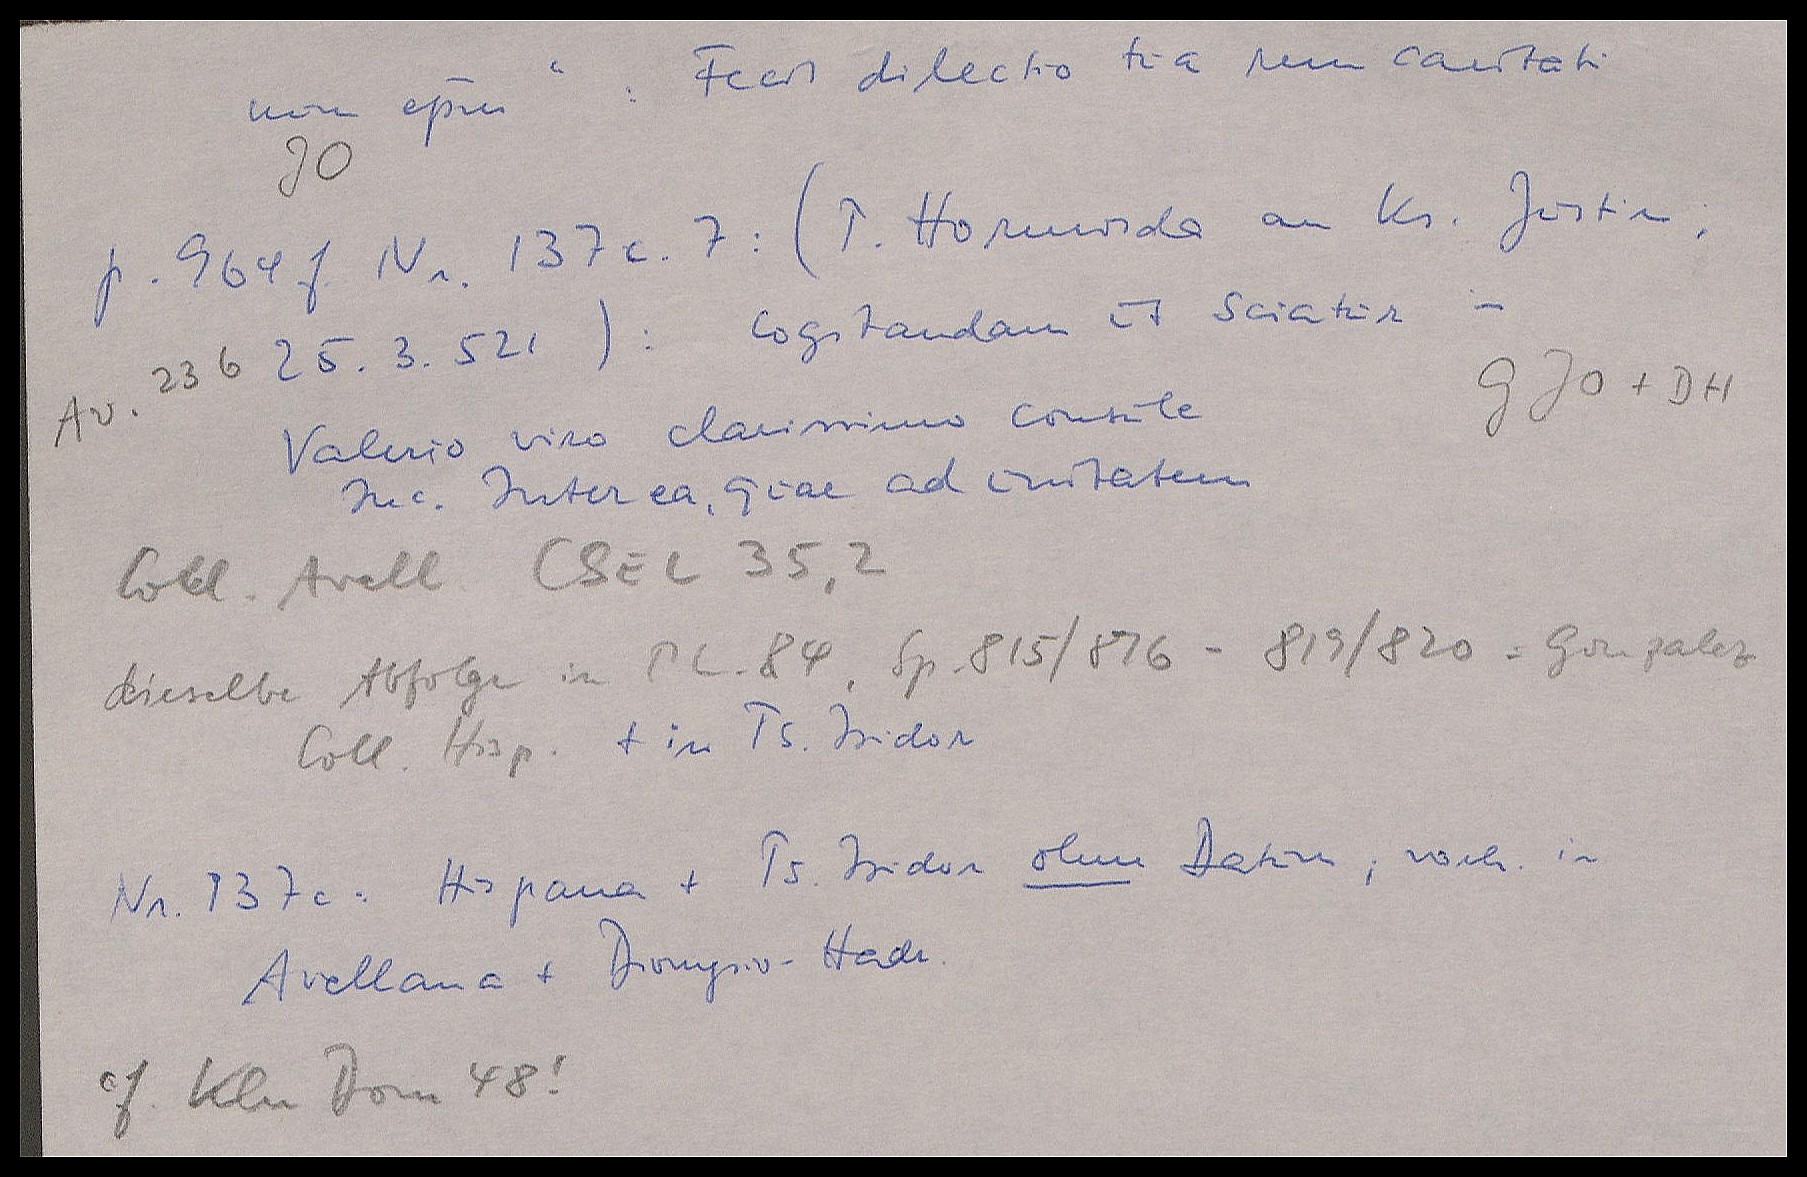 non epm " : Fecit dilectio tua rem caritati
JO
p. 964 f. Nr. 137 c. 7 : ( P. Hormisda an Ks. Justin ;
Av. 236 25. 3. 521 ) : Cogitandam ut sciatur –
g JO + DH
Valerio viro clarissimo consule
Inc. Inter ea, quae ad unitatem
Coll. Avell. CSEL 35,2
dieselbe Abfolge in PL. 84, Sp. 815/816 - 819/820 = Gonzalez
Coll. Hisp. + in Ps. Isidor
Nr. 137 c : Hispana + Ps. Isidor ohne Datum ; vorh. in
Avellana + Dionysio-Hadr.
cf. Kln Dom 48!